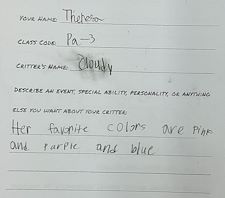 YOUR NAME: Theresa
CLASS CODE: Pa-3
CRITTER'S NAME: Cloudy
DESCRIBE AN EVENT, SPECIAL ABILITY, PERSONALITY, OR ANYTHING
ELSE YOU WANT ABOUT YOUR CRITTER:
Her favorite colors are Pink
and Purple and blue